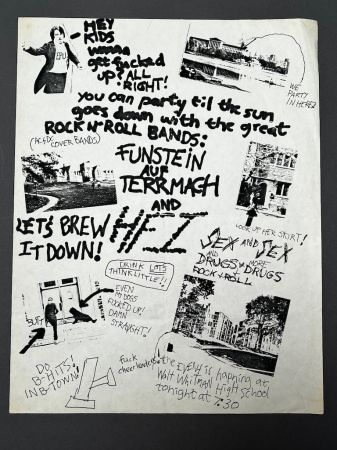 HEY
KIDS
wanna
get fucked
up? ALL
RIGHT!
EPU
WE
PARTY
IN HERE!
You can party til the sun
goes down with the great
ROCK N' ROLL BANDS:
(AC/DC
COVER BANDS)
FUNSTEIN
AUF
TERRMAGH
AND
HFI
LOOK UP HER SKIRT!
LET'S BREW
IT DOWN!
SEX AND SEX
AND MORE
DRUGS & DRUGS
ROCK & ROLL
DRINK LOTS
THINK LITTLE!!
EVEN
MY DOGS
FUCKED UP!
DAMN
STRAIGHT!
BUTT
DO
B-HITS!
IN B-TOWN!
fuck
cheerleaders
the EVENt is hapning at
Walt Whitman High School
tonight at 7:30